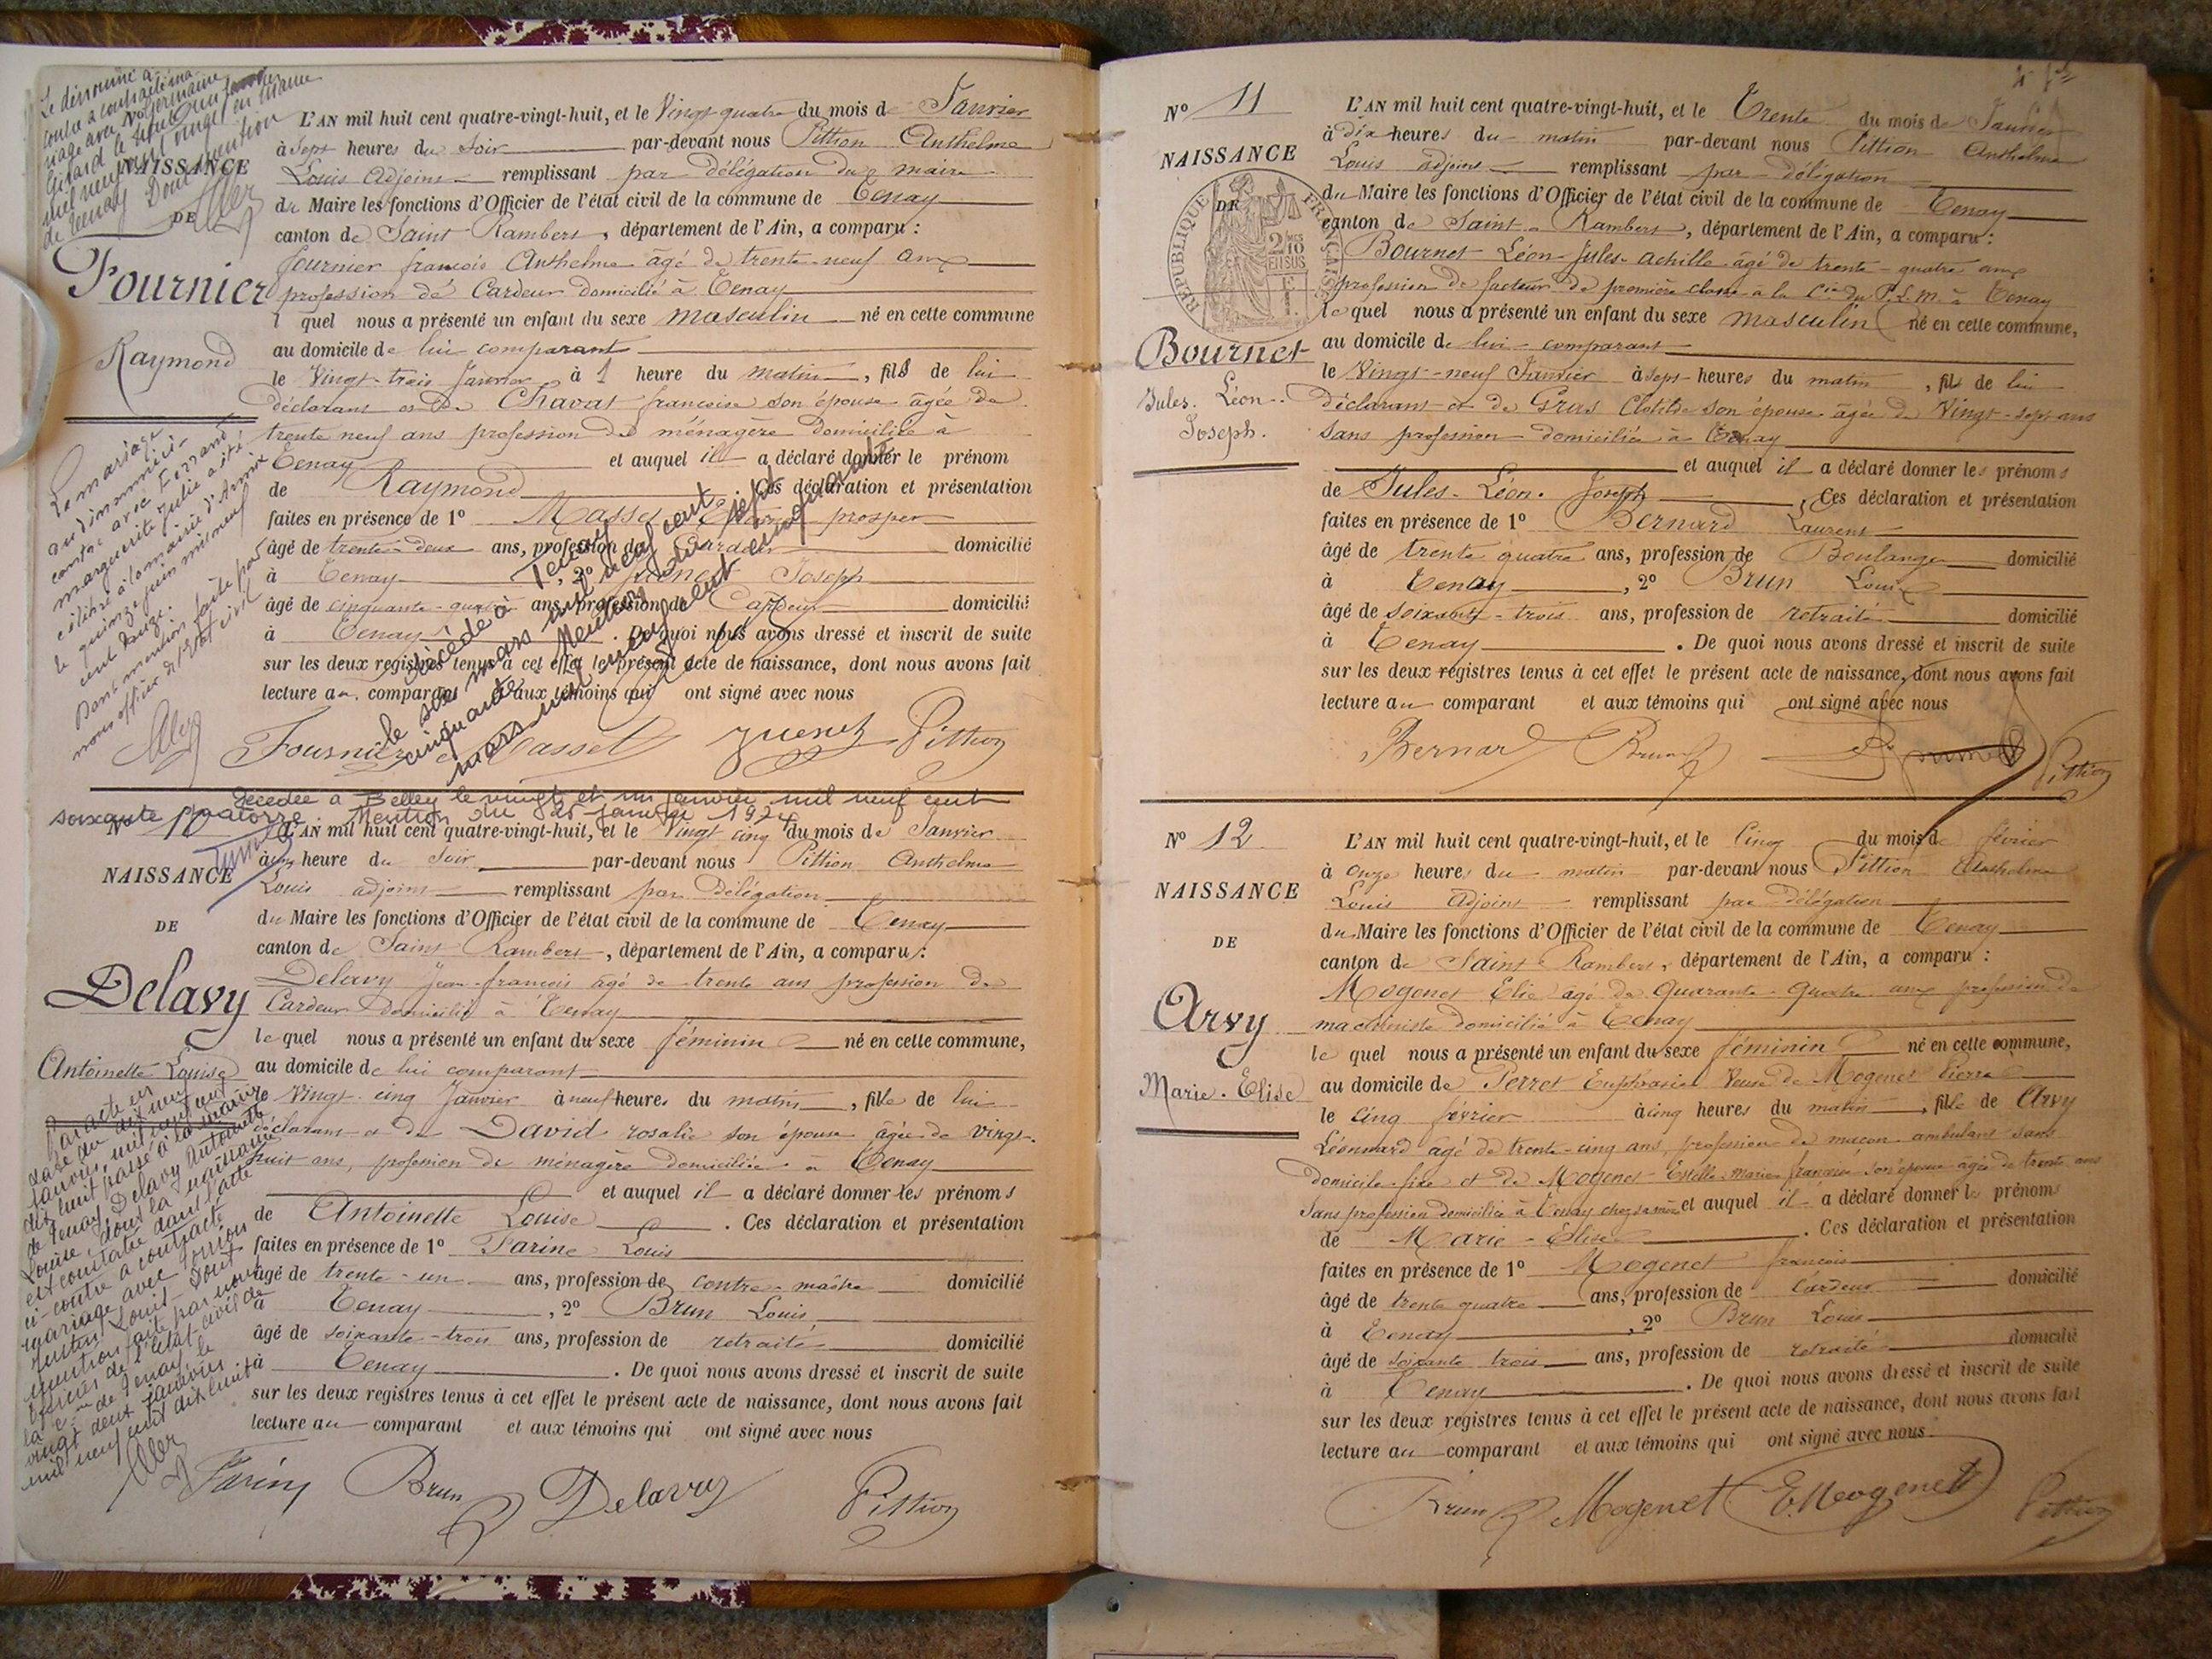 NAISSANCE
DE
Fournier
Raymond
L'AN mil huit cent quatre-vingt-huit, et le Vingt quatre du mois de Janvier
à Sept heures du soir par-devant nous Pittion Anthelme
Louis adjoint remplissant par délégation du maire
du Maire les fonctions d'Officier de l'état civil de la commune de Tenay
canton de Saint Rambert, département de l'Ain, a comparu :
Fournier françois Anthelme âgé de trente-neuf ans
profession dé Cardeur domicilié à Tenay
l quel nous a présenté un enfant du sexe masculin né en cette commune
au domicile de lui comparant
le Vingt-trois Janvier à 1 heure du matin, fils de lui
déclarant et de Chavat françoise son épouse âgée de
trente neuf ans profession de ménagère domiciliée à
Tenay et auquel il a déclaré donner le prénom
de Raymond. Ces déclaration et présentation
faites en présence de 1º Masset prosper
âgé de trente-deux ans, profession de Cardeur domicilié
à Tenay, 2º Joseph
âgé de cinquante-quatre ans, profession de Cardeur domicilié
à Tenay. De quoi nous avons dressé et inscrit de suite
sur les deux registres tenus à cet effet le présent acte de naissance, dont nous avons fait
lecture au comparant et aux témoins qui ont signé avec nous
Le mariage
contre avec Ferrand
marguerite Julie a été
célébré à la mairie d'
le quinze juin mil neuf
cent douze.
Dont mention faite par
nous officier de l'état civil
Décédé à Tenay
le six mars mil neuf cent
cinquante Mention du sept
mars mil neuf cent cinquante
Fournier Masset Pittion
Décédée à Belley le vingt et un janvier mil neuf cent
soixante quatorze. Mention du 25 janvier 1974
Nº 10
NAISSANCE
DE
Delavy
Antoinette Louise
L'AN mil huit cent quatre-vingt-huit, et le Vingt cinq du mois de Janvier
à une heure du soir par-devant nous Pittion Anthelme
Louis adjoint remplissant par délégation
du Maire les fonctions d'Officier de l'état civil de la commune de Tenay
canton de Saint Rambert, département de l'Ain, a comparu :
Delavy Jean-françois âgé de trente ans profession de
Cardeur domicilié à Tenay
le quel nous a présenté un enfant du sexe féminin né en cette commune,
au domicile de lui comparant
le Vingt-cinq Janvier à neuf heures du matin, fille de lui
déclarant et de David rosalie son épouse âgée de vingt-
huit ans, profession de ménagère domiciliée à Tenay
et auquel il a déclaré donner les prénoms
de Antoinette Louise. Ces déclaration et présentation
faites en présence de 1º Farine Louis
âgé de trente-un ans, profession de contre-maître domicilié
à Tenay, 2º Brun Louis,
âgé de soixante-trois ans, profession de retraité domicilié
à Tenay. De quoi nous avons dressé et inscrit de suite
sur les deux registres tenus à cet effet le présent acte de naissance, dont nous avons fait
lecture au comparant et aux témoins qui ont signé avec nous
Par acte en
date du dix neuf
janvier, mil neuf cent
dix huit passé à la mairie
de Tenay, Delavy Antoinette
Louise, dont la naissance
est constatée dans l'acte
ci-contre a contracté
mariage avec
Louis. Dont
mention faite par nous
officier de l'état-civil de
la Cne de Tenay le
vingt deux janvier
mil neuf cent dix huit
Farine Brun Delavy Pittion
Nº 11
NAISSANCE
DE
RÉPUBLIQUE FRANÇAISE
Bournet
Jules. Léon.
Joseph.
L'AN mil huit cent quatre-vingt-huit, et le Trente du mois de Janvier
à dix heures du matin par-devant nous Pittion Anthelme
Louis adjoint remplissant par délégation
du Maire les fonctions d'Officier de l'état civil de la commune de Tenay
canton de Saint-Rambert, département de l'Ain, a comparu :
Bournet Léon-Jules-Achille âgé de trente-quatre ans
profession de facteur de première classe à la Cie du P.L.M. à Tenay
le quel nous a présenté un enfant du sexe masculin né en cette commune,
au domicile de lui-comparant
le Vingt-neuf Janvier à sept heures du matin, fils de lui
déclarant et de Gras Clotilde son épouse âgée de Vingt-sept ans
sans profession domiciliée à Tenay
et auquel il a déclaré donner les prénoms
de Jules-Léon-Joseph. Ces déclaration et présentation
faites en présence de 1º Bernard Laurent
âgé de trente quatre ans, profession de Boulanger domicilié
à Tenay, 2º Brun Louis
âgé de soixante-trois ans, profession de retraité domicilié
à Tenay. De quoi nous avons dressé et inscrit de suite
sur les deux registres tenus à cet effet le présent acte de naissance, dont nous avons fait
lecture au comparant et aux témoins qui ont signé avec nous
Bernard Brun Pittion
Nº 12
NAISSANCE
DE
Arvy
Marie. Elise
L'AN mil huit cent quatre-vingt-huit, et le Cinq du mois de février
à onze heures du matin par-devant nous Pittion Anthelme
Louis Adjoint remplissant par délégation
du Maire les fonctions d'Officier de l'état civil de la commune de Tenay
canton de Saint-Rambert, département de l'Ain, a comparu :
Mogenet Elie âgé de Quarante-Quatre ans profession de
machiniste domicilié à Tenay
le quel nous a présenté un enfant du sexe féminin né en cette commune,
au domicile de Perret Euphrasie Veuve de Mogenet Pierre
le Cinq février à cinq heures du matin, fille de Arvy
Léonnard âgé de trente-cinq ans, profession de maçon ambulant sans
domicile fixe et de Mogenet Estelle Marie françoise son épouse âgée de trente ans
Sans profession domiciliée à Tenay chez sa mère et auquel il a déclaré donner les prénoms
de Marie-Elise. Ces déclaration et présentation
faites en présence de 1º Mogenet françois
âgé de trente quatre ans, profession de Cardeur domicilié
à Tenay, 2º Brun Louis
âgé de soixante trois ans, profession de retraité domicilié
à Tenay. De quoi nous avons dressé et inscrit de suite
sur les deux registres tenus à cet effet le présent acte de naissance, dont nous avons fait
lecture au comparant et aux témoins qui ont signé avec nous
Brun Mogenet E. Mogenet Pittion